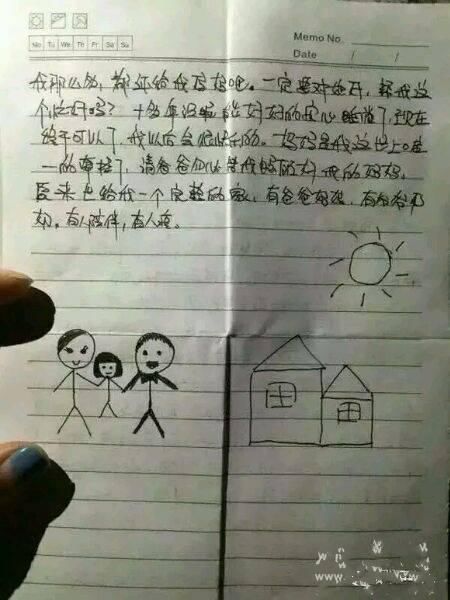 Memo No.
Mo Tu We Th Fr Sa Su
Date / /
我那么多，都还给我妈妈吧。一定要对她好，帮我这
个忙好吗？十多年没有能好好的安心睡觉了，现在
终于可以了，我以后会很快乐的。妈妈是我这世上唯
一的牵挂了，请爸爸 替我照顾好我的妈妈。
来也给我一个完整的家，有爸爸妈妈，有爷爷奶
奶。有人陪伴，有人疼。
www.